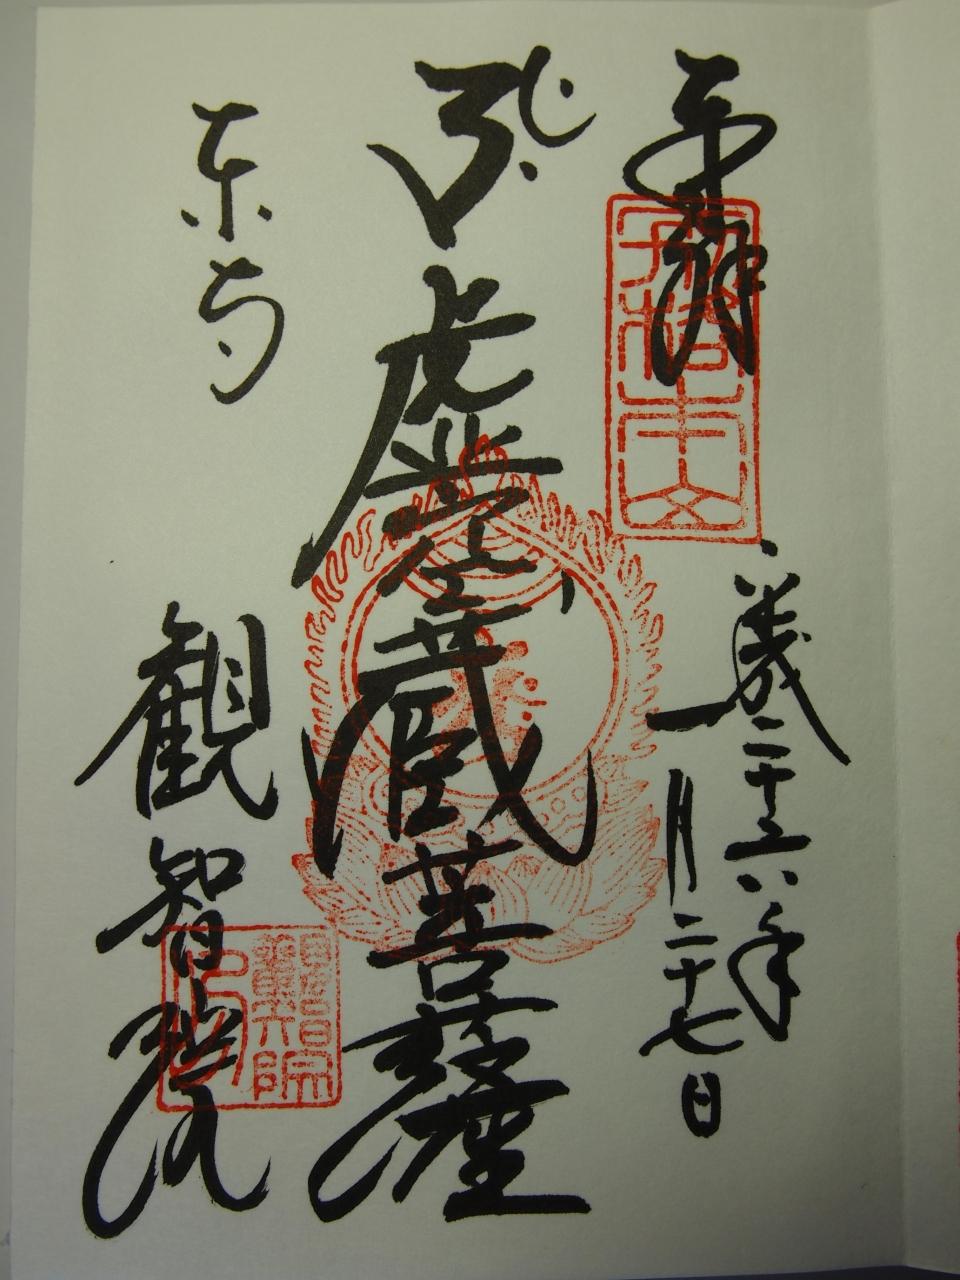 奉拝
平成二十六年
一月二十七日
虚空蔵菩薩
東寺
観智院